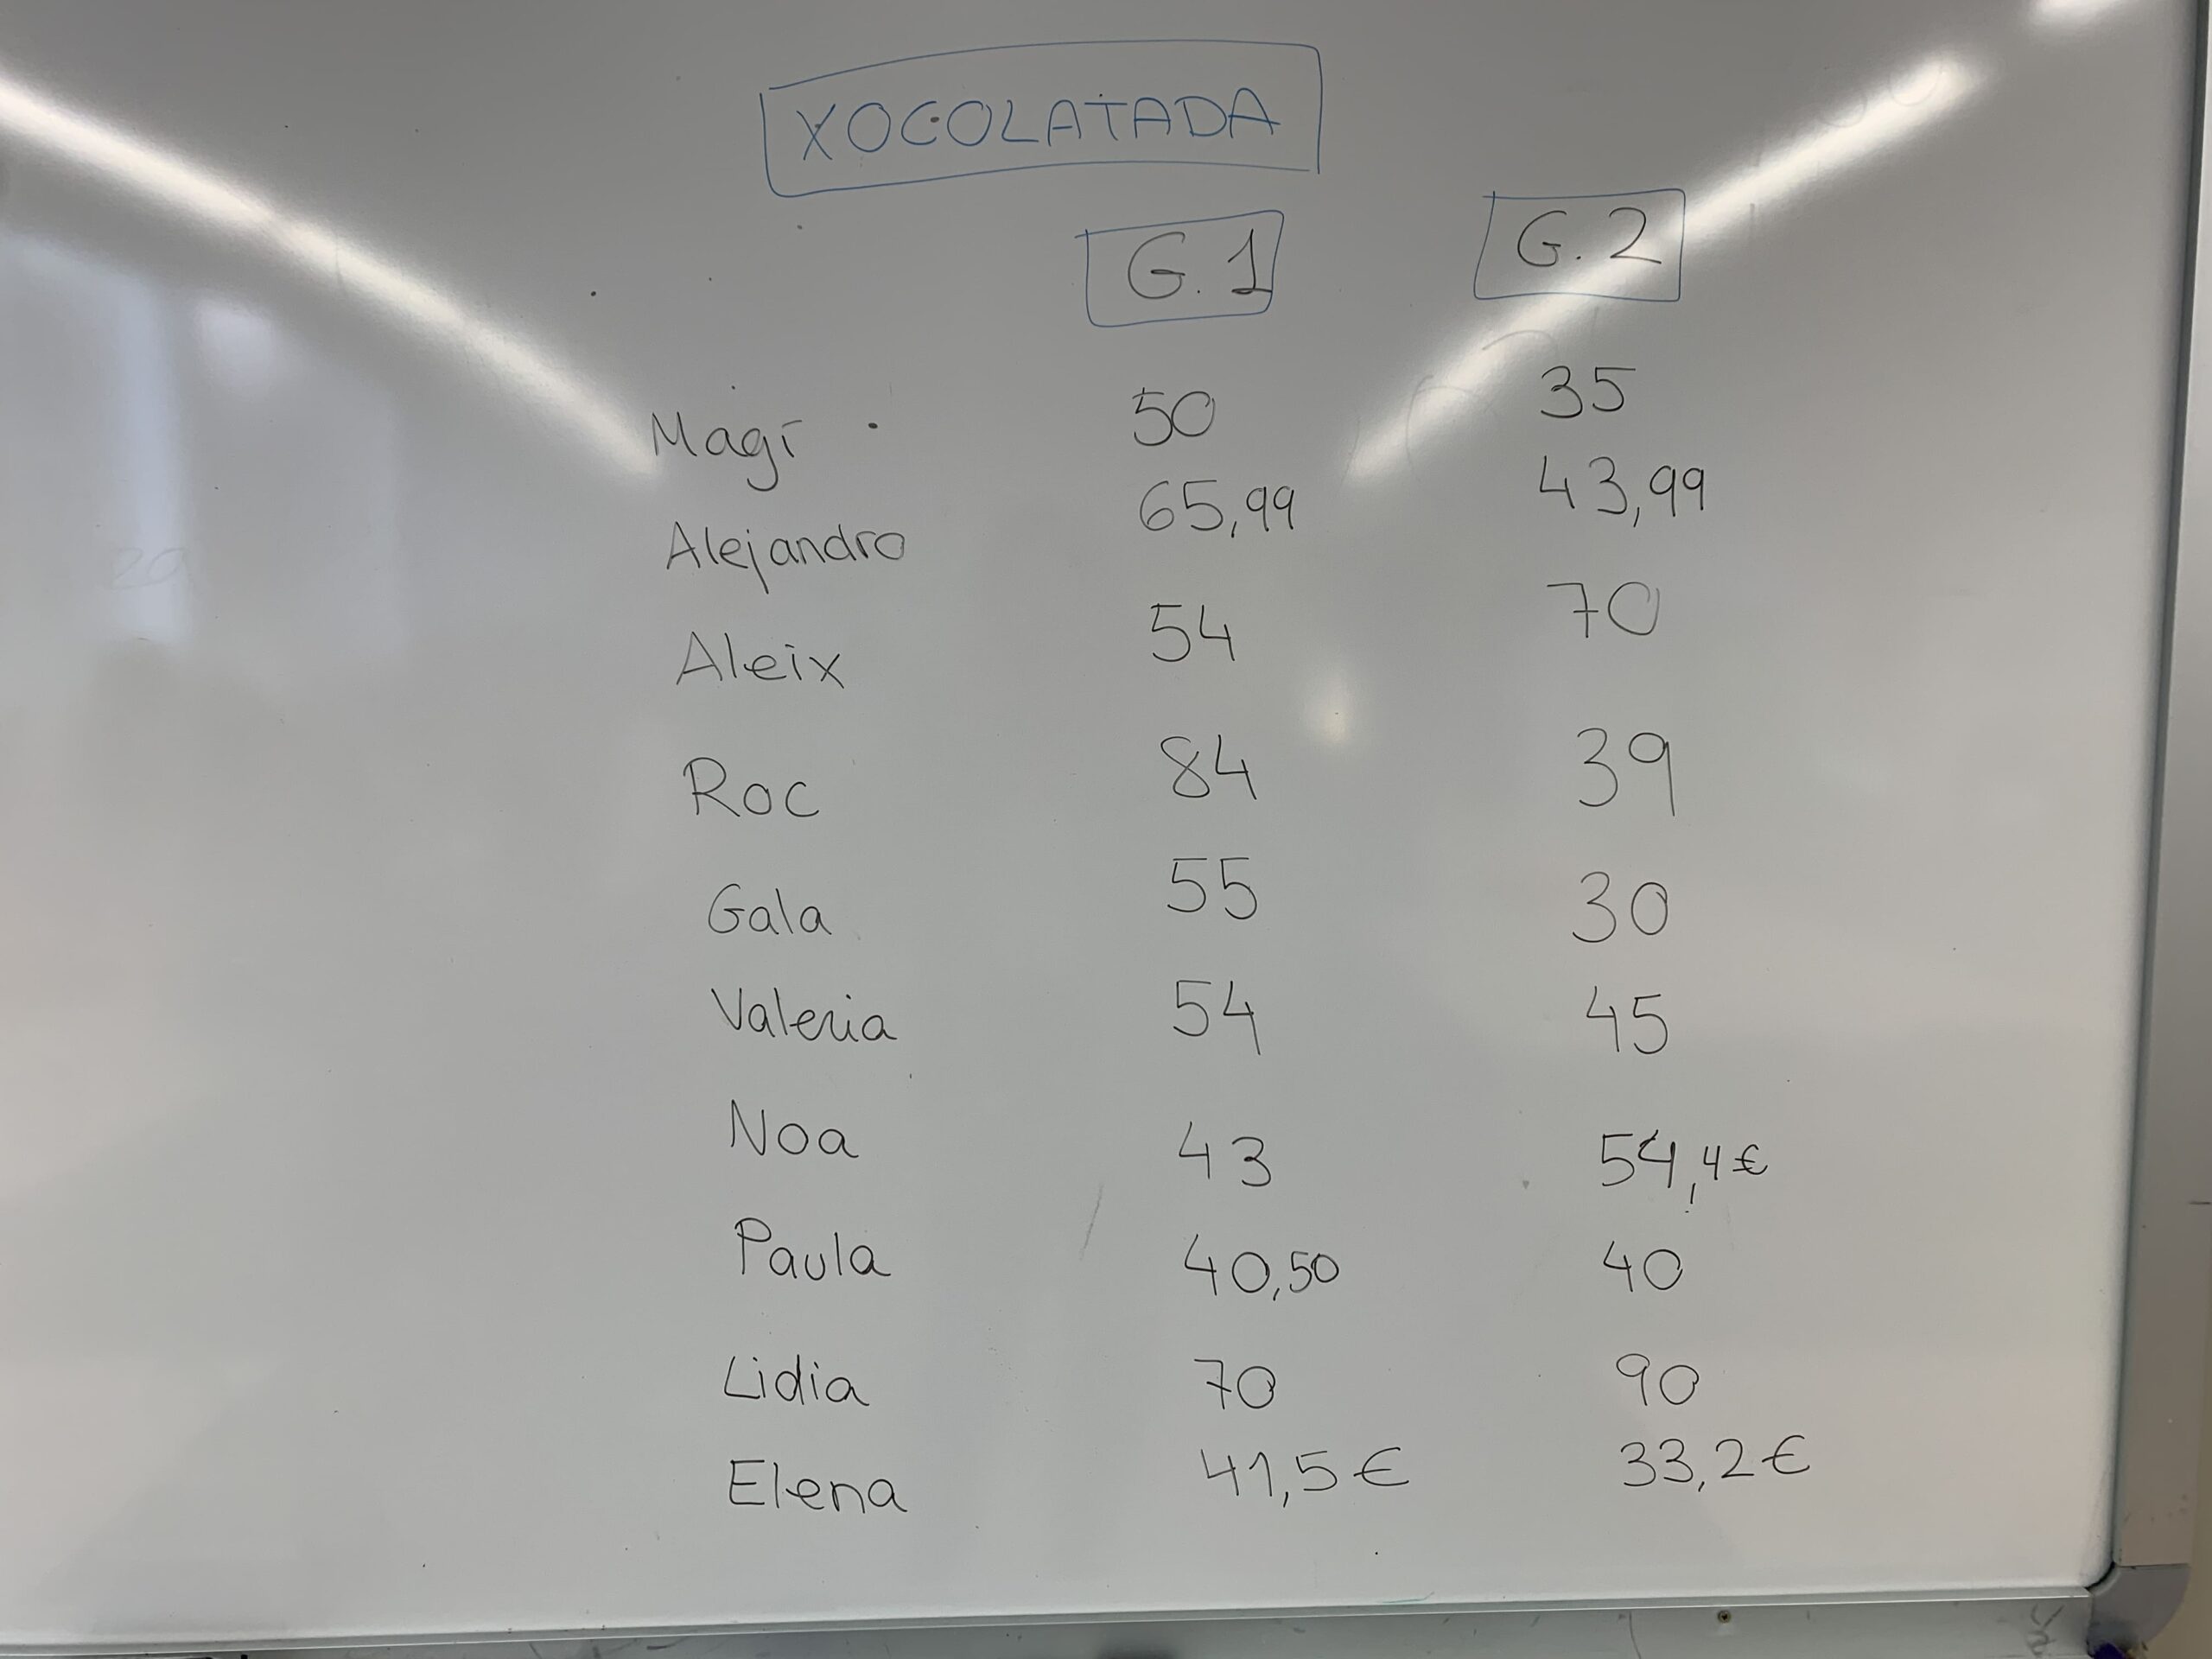 XOCOLATADA
G.1 G.2
Magí 50 35
Alejandro 65,99 43,99
Aleix 54 70
Roc 84 39
Gala 55 30
Valeria 54 45
Noa 43 54,4€
Paula 40,50 40
Lidia 70 90
Elena 41,5€ 33,2€